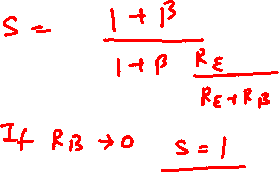 S = 1 + β
1 + β R_E
R_E + R_B
If R_B → 0 S = 1